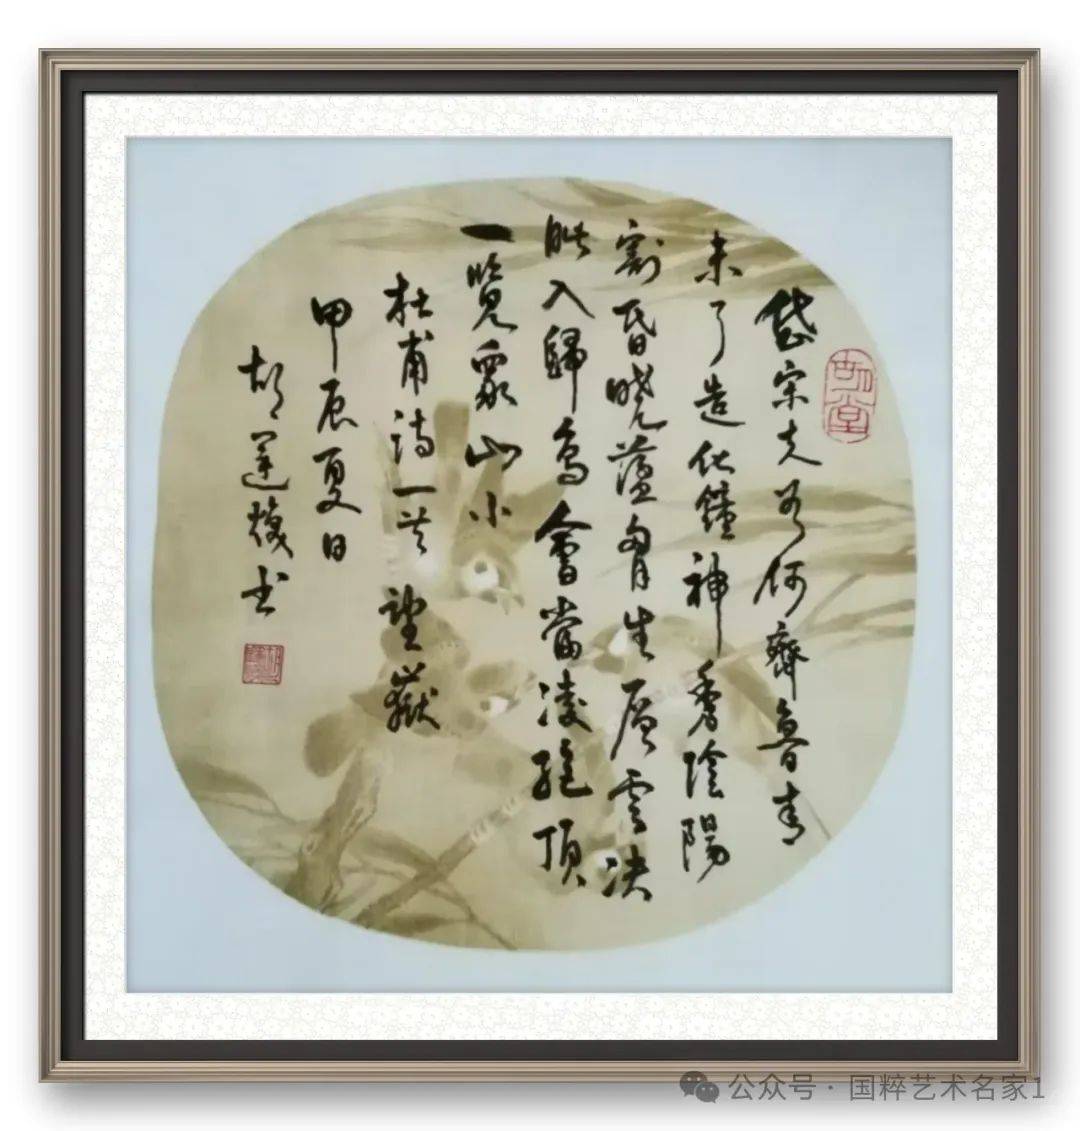 岱宗夫如何齊魯青
未了造化鐘神秀陰陽
割昏曉蘯胷生層雲決
眦入歸鳥會當凌絕頂
一覽眾山小
杜甫詩一首望嶽
甲辰夏日
胡蓮馥书
公众号 · 国粹艺术名家1